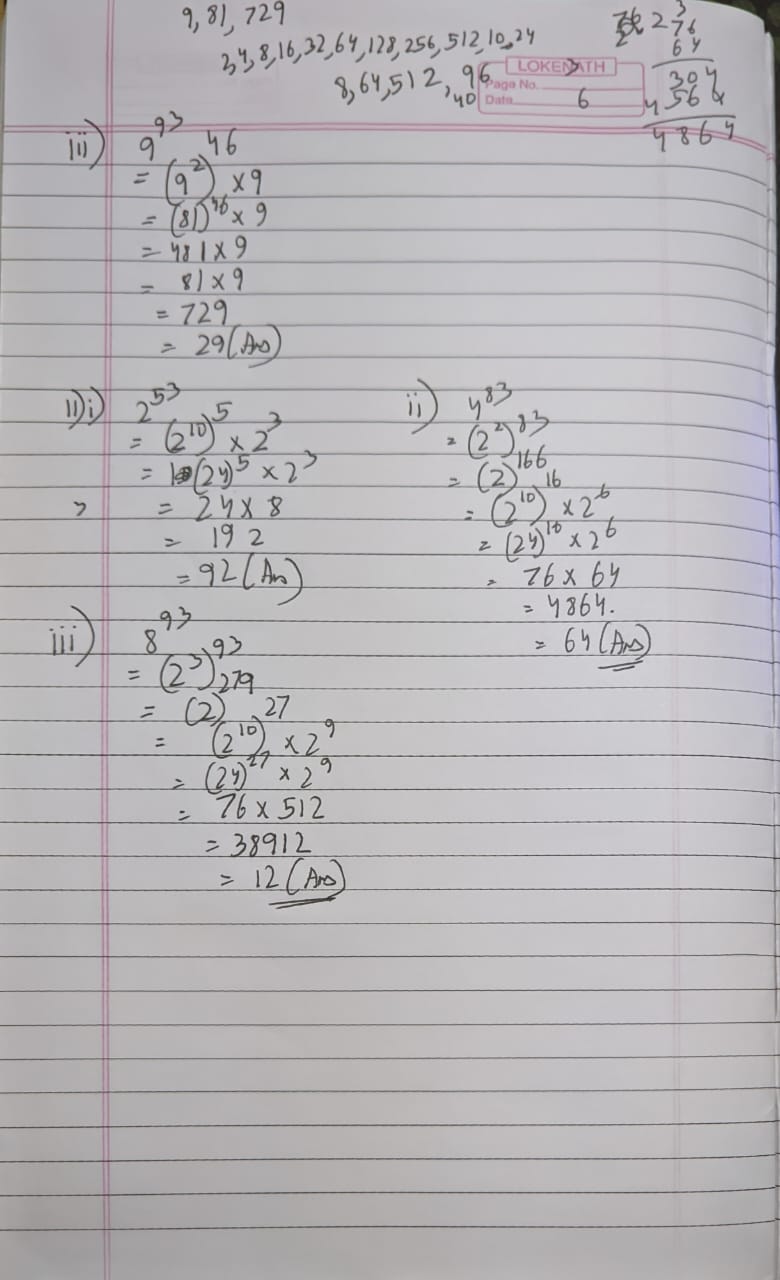 9, 81, 729
2,4,8,16,32,64,128,256,512,10,24
8,64,512, 96
,40
2
3
76
64
304
4564
4864
LOKENATH
Page No. 3
Date 6
iii) 9^93
= (9^2)^46 × 9
= (81)^46 × 9
= 481 × 9
= 81 × 9
= 729
= 29 (Ans)
11) i) 2^53
= (2^10)^5 × 2^3
= (24)^5 × 2^3
= 24 × 8
= 192
= 92 (Ans)
ii) 4^83
= (2^2)^83
= (2)^166
= (2^10)^16 × 2^6
= (24)^16 × 2^6
= 76 × 64
= 4864.
= 64 (Ans)
iii) 8^93
= (2^3)^93
= (2)^279
= (2^10)^27 × 2^9
= (24)^27 × 2^9
= 76 × 512
= 38912
= 12 (Ans)